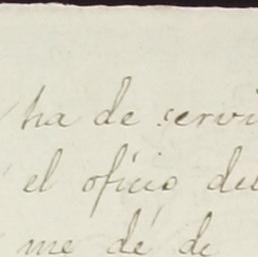 ha de servi
el oficio del
me dé de